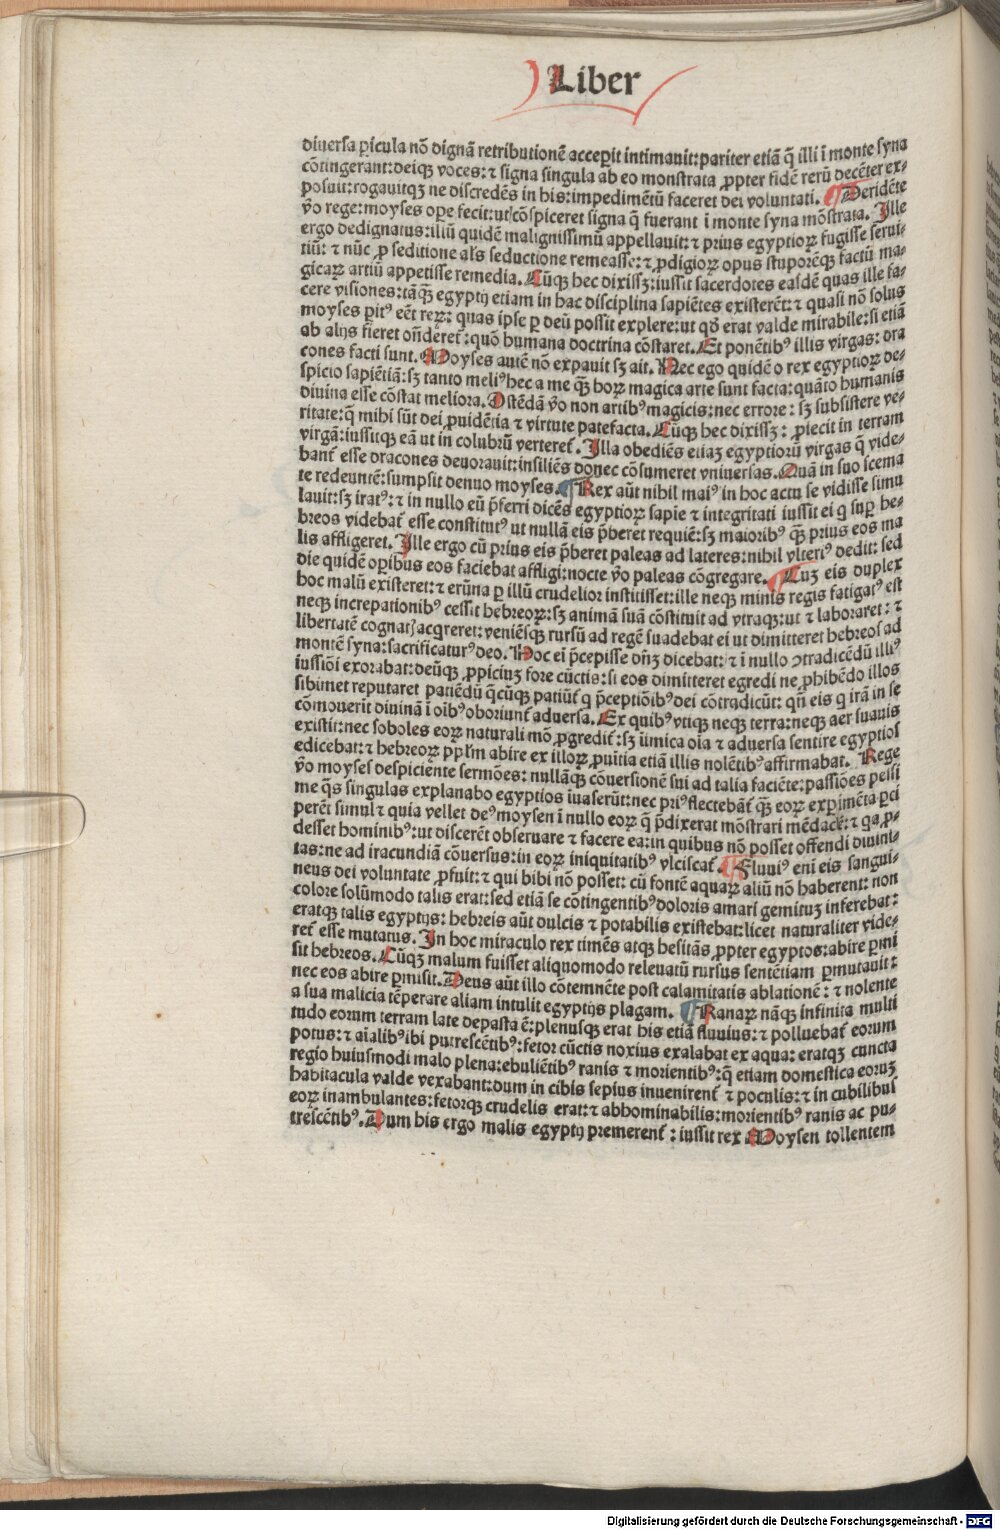 Liber
diuersa ꝑicula nō dignā retributionē acceꝑit intimauit: pariter etiā q̄ illi ī monte syna
cōtingerant: deiqꝫ voces: ⁊ signa singula ab eo monstrata ꝓpter fidē rerū decēter ex⸗
posuit: rogauitqꝫ ne discredēs in his: impedimētū faceret dei voluntati. ¶ Deridēte
v̄o rege: moyses oꝑe fecit: ut cōspiceret signa q̄ fuerant ī monte syna mōstrata. Ille
ergo dedignatus: illū quidē malignissimū appellauit: ⁊ prius egyptioꝝ fugisse serui⸗
tiū: ⁊ nūc ꝓ seditione al̓s seductione remeasse: ⁊ ꝓdigioꝝ opus stuporēqꝫ factū ma⸗
gicaꝝ artiū appetisse remedia. Cūqꝫ hec dixissꝫ: iussit sacerdotes easdē quas ille fa⸗
cere visiones: tāqꝫ̄ egyptij etiam in hac disciplina sapiētes existerēt: ⁊ quasi nō solus
moyses ꝑitꝰ eēt reꝝ: quas ipse ꝑ deū possit explere: ut qđ erat valde mirabile: si etiā
ab alijs fieret on̄deret̄: quō humana doctrina cōstaret. Et ponētibꝰ illis virgas: dra
cones facti sunt. Moyses autē nō expauit sꝫ ait. Nec ego quidē o rex egyptioꝝ de⸗
spicio sapiētiā: sꝫ tanto meliꝰ hec a me qꝫ̄ hoꝝ magica arte sunt facta: quāto humanis
diuina esse cōstat meliora. Ostēdā v̄o non artibꝰ magicis: nec errore: sꝫ subsistere ve⸗
ritate: q̄ mihi sūt dei ꝓuidētia ⁊ virtute patefacta. Cūqꝫ hec dixissꝫ: ꝓiecit in terram
virgā: iussitqꝫ eā ut in colubrū verteret̄. Illa obediēs etiaꝫ egyptiorū virgas q̄ vide⸗
bant̄ esse dracones deuorauit: insiliēs donec cōsumeret vniuersas. Quā in suo scema
te redeuntē: sumpsit denuo moyses. ¶ Rex aūt nihil maiꝰ in hoc actu se vidisse simu
lauit: sꝫ iratꝰ: ⁊ in nullo eū p̄ferri dicēs egyptioꝝ sapīe ⁊ integritati iussit ei q̄ suꝑ he⸗
breos videbat̄ esse constitutꝰ ut nullā eis p̄beret requiē: sꝫ maioribꝰ qꝫ̄ prius eos ma
lis affligeret. Ille ergo cū prius eis p̄beret paleas ad lateres: nihil vlteriꝰ dedit: sed
die quidē oꝑibus eos faciebat affligi: nocte v̄o paleas cōgregare. ¶ Cuꝫ eis duplex
hoc malū existeret: ⁊ erūna ꝑ illū crudelior institisset: ille neqꝫ minis regis fatigatꝰ est
neqꝫ increpationibꝰ cessit hebreoꝝ: sꝫ animā suā cōstituit ad vtraqꝫ: ut ⁊ laboraret: ⁊
libertatē cognatꝫ acq̄reret: veniēsqꝫ rursū ad regē suadebat ei ut dimitteret hebreos ad
montē syna: sacrificaturꝰ deo. Hoc eī p̄cepisse dn̄ꝫ dicebat: ⁊ ī nullo ꝯtradicēdū illiꝰ
iussiōi exorabat: deūqꝫ ꝓpiciuꝫ fore cūctis: si eos dimitteret egredi ne ꝓhibēdo illos
sibimet reputaret patiēdū q̄cūqꝫ patiūt̄ q̄ p̄ceptiōibꝰ dei cōtradicūt: qn̄ eis q̄ irā in se
cōmouerīt diuinā ī oībꝰ oboriunt̄ aduersa. Ex quibꝰ vtiqꝫ neqꝫ terra: neqꝫ aer suauis
existit: nec soboles eoꝝ naturali mō ꝓgredit̄: sꝫ inīmica oīa ⁊ aduersa sentire egyptios
edicebat: ⁊ hebreoꝝ ppl̓m abire ex illoꝝ ꝓuītia etiā illis nolētibꝰ affirmabat. Rege
v̄o moyses despiciente sermōes: nullāqꝫ cōuersionē sui ad talia faciēte: passiōes pessi
me q̄s singulas explanabo egyptios īuaserūt: nec priꝰ flectebāt̄ qꝫ̄ eoꝝ exꝑimēta ꝑci
perēt simul ⁊ quia vellet deꝰ moysen ī nullo eoꝝ q̄ p̄dixerat mōstrari mēdacē: ⁊ qa ꝓ⸗
desset hominibꝰ: ut discerēt obseruare ⁊ facere ea: in quibus nō posset offendi diuini⸗
tas: ne ad iracundiā cōuersus: in eoꝝ iniquitatibꝰ vlciscat̄. ¶ Fluuiꝰ enī eis sangui⸗
neus dei voluntate ꝓfuit: ⁊ qui bibi nō posset: cū fontē aquaꝝ aliū nō haberent: non
colore solūmodo talis erat: sed etiā se cōtingentibꝰ doloris amari gemituꝫ inferebat:
eratqꝫ talis egyptijs: hebreis aūt dulcis ⁊ potabilis existebat: licet naturaliter vide⸗
ret̄ esse mutatus. In hoc miraculo rex timēs atqꝫ hesitās ꝓpter egyptos: abire ꝑmi
sit hebreos. Cūqꝫ malum fuisset aliquomodo releuatū rursus sentētiam ꝑmutauit:
nec eos abire ꝑmisit. Deus aūt illo cōtemnēte post calamitatis ablationē: ⁊ nolente
a sua malicia tēperare aliam intulit egyptijs plagam. ¶ Ranaꝝ nāqꝫ infinita multi
tudo eorum terram late depasta ē: plenusqꝫ erat his etiā fluuius: ⁊ polluebat̄ eorum
potus: ⁊ aīalibꝰ ibi putrescētibꝰ: fetor cūctis noxius exalabat ex aqua: eratqꝫ cuncta
regio huiusmodi malo plena: ebuliētibꝰ ranis ⁊ morientibꝰ: q̄ etiam domestica eoruꝫ
habitacula valde vexabant: dum in cibis sepius inuenirent̄ ⁊ poculis: ⁊ in cubilibus
eoꝝ inambulantes: fetorqꝫ crudelis erat: ⁊ abhominabilis: morientibꝰ ranis ac pu⸗
trescētibꝰ. Dum his ergo malis egyptij premerent̄: iussit rex Moysen tollentem
Digitalisierung gefördert durch die Deutsche Forschungsgemeinschaft - DFG